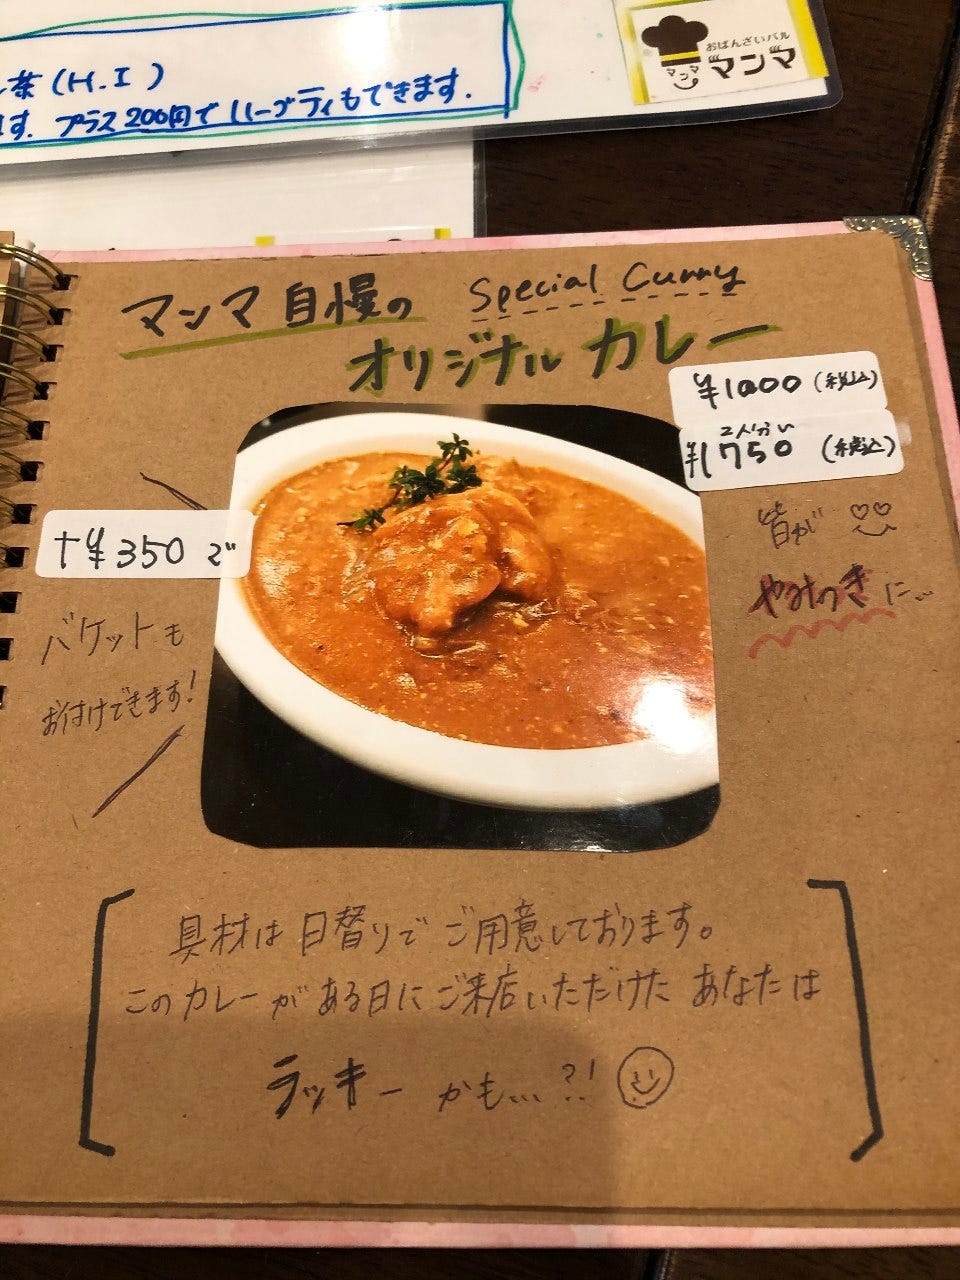 茶(H.I)
す. プラス200円でハーブティもできます.
おばんざいバル
マンマ
マンマ
マンマ自慢の Special Curry
オリジナルカレー
¥1000(税込)
2人分い
¥1750(税込)
皆が
やみつきに…
+¥350で
バケットも
お付けできます!
具材は日替りでご用意しております。
このカレーがある日にご来店いただけたあなたは
ラッキーかも...?!